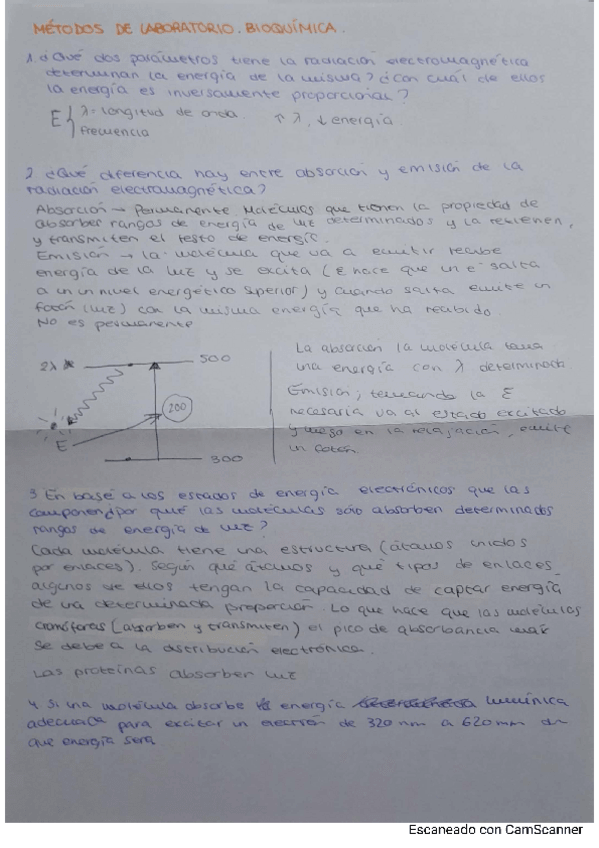 MÉTODOS DE LABORATORIO. BIOQUÍMICA.
1. ¿Qué dos parámetros tiene la radiación electromagnética
determinan la energía de la misma? ¿con cuál de ellos
la energía es inversamente proporcional?
E { λ = longitud de onda. ↑ λ, ↓ energía
frecuencia
2. ¿Qué diferencia hay entre absorción y emisión de la
radiación electromagnética?
Absorción → Permanente Moléculas que tienen la propiedad de
absorber rangos de energía de luz determinados y la retienen,
y transmiten el resto de energía.
Emisión → la molécula que va a emitir recibe
energía de la luz y se excita (E hace que un e⁻ salta
a un un nivel energético superior) y cuando salta emite un
fotón (luz) con la misma energía que ha recibido.
No es permanente
2λ 500
200
E
300
La absorción la molécula toma
una energía con λ determinada
Emisión; tomando la E
necesaria va al estado excitado
y luego en la relajación, emite
un fotón
3 En base a los estados de energía electrónicos que las
componen ¿por qué las moléculas sólo absorben determinados
rangos de energía de luz?
Cada molécula tiene una estructura (átomos unidos
por enlaces). Según qué átomos y qué tipos de enlaces
algunos de ellos tengan la capacidad de captar energía
de una determinada proporción. Lo que hace que las moléculas
cromóforas (absorben y transmiten) el pico de absorbancia max
se debe a la distribución electrónica.
Las proteínas absorben luz
4. Si una molécula absorbe energía lumínica
adecuada para excitar un electrón de 320 nm a 620 nm
que energía será
Escaneado con CamScanner